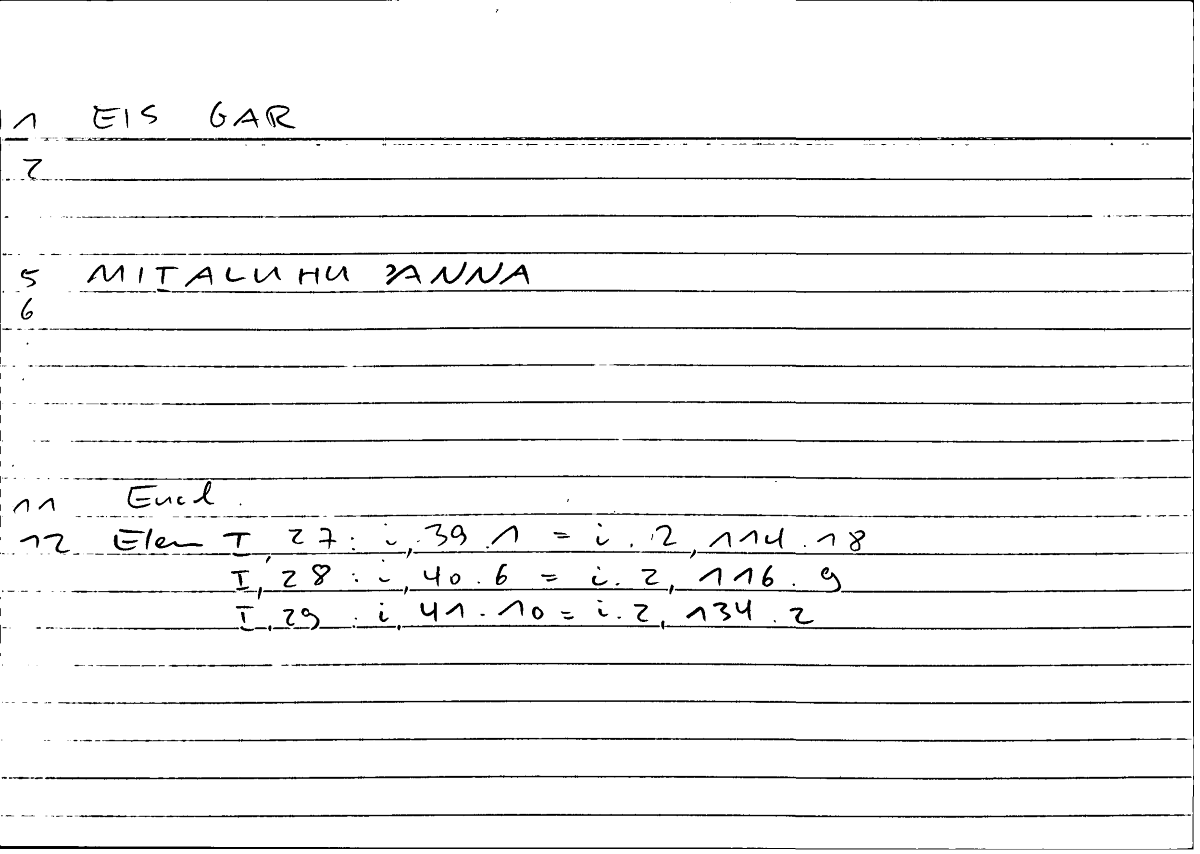 1 EIS GAR
2
5 MITALUHU ʾANNA
6
11 Eucl.
12 Elem I, 27: i, 39.1 = i.2, 114.18
I, 28: i, 40.6 = i.2, 116.9
I, 29: i, 41.10 = i.2, 134.2